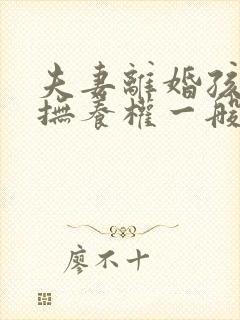 夫妻離婚孩
撫養權一般
廖不十